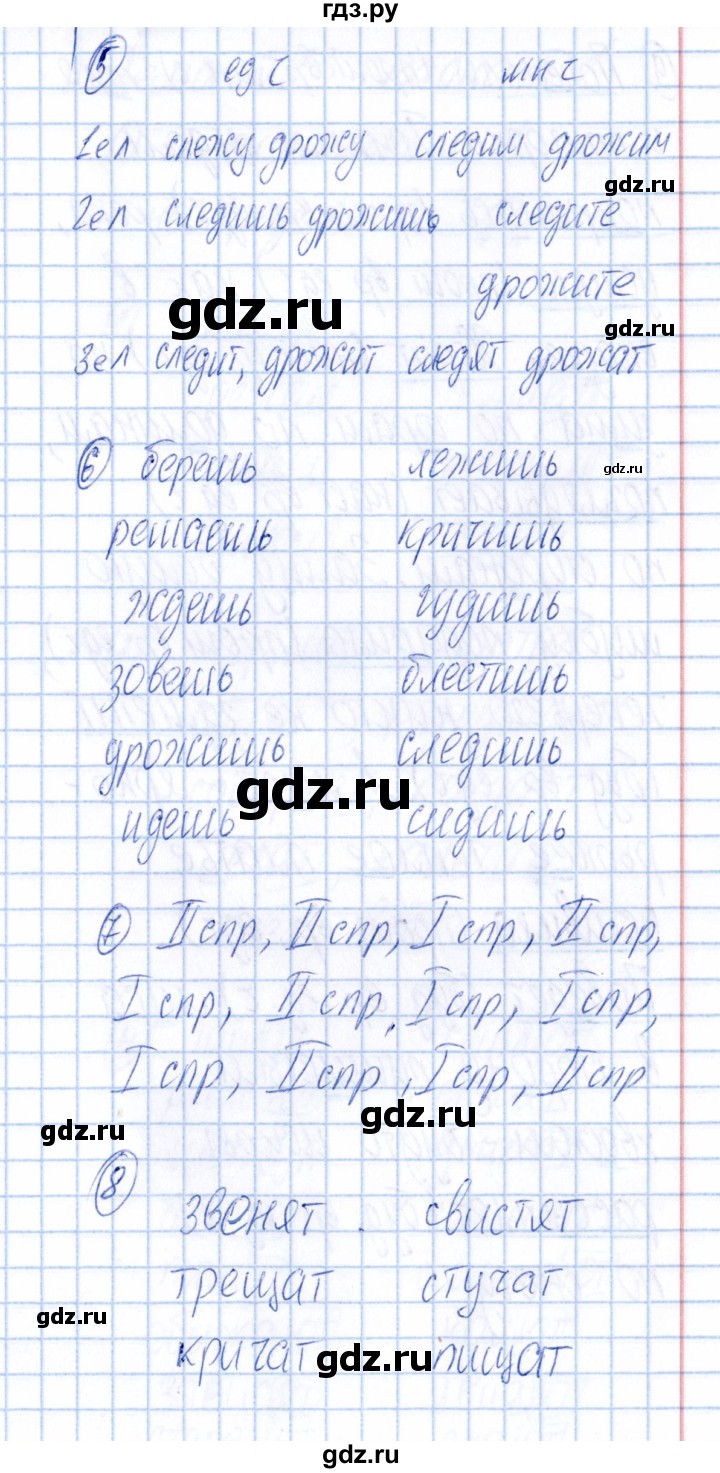 гдз.ру
5 ед ч мн ч
1е л слежу дрожу следим дрожим
gdz.ru
2е л следишь дрожишь следите
дрожите
gdz.ru
gdz.ru
3е л следит, дрожит следят дрожат
6 берешь лежишь
gdz.ru
решаешь кричишь
ждешь гудишь
зовешь блестишь
дрожишь следишь
gdz.ru
идешь сидишь
7 II спр, II спр, I спр, II спр,
I спр, II спр, I спр, I спр,
I спр, II спр, I спр, II спр
gdz.ru
gdz.ru
8
звенят свистят
трещат стучат
gdz.ru
кричат пищат
gdz.ru
gdz.ru